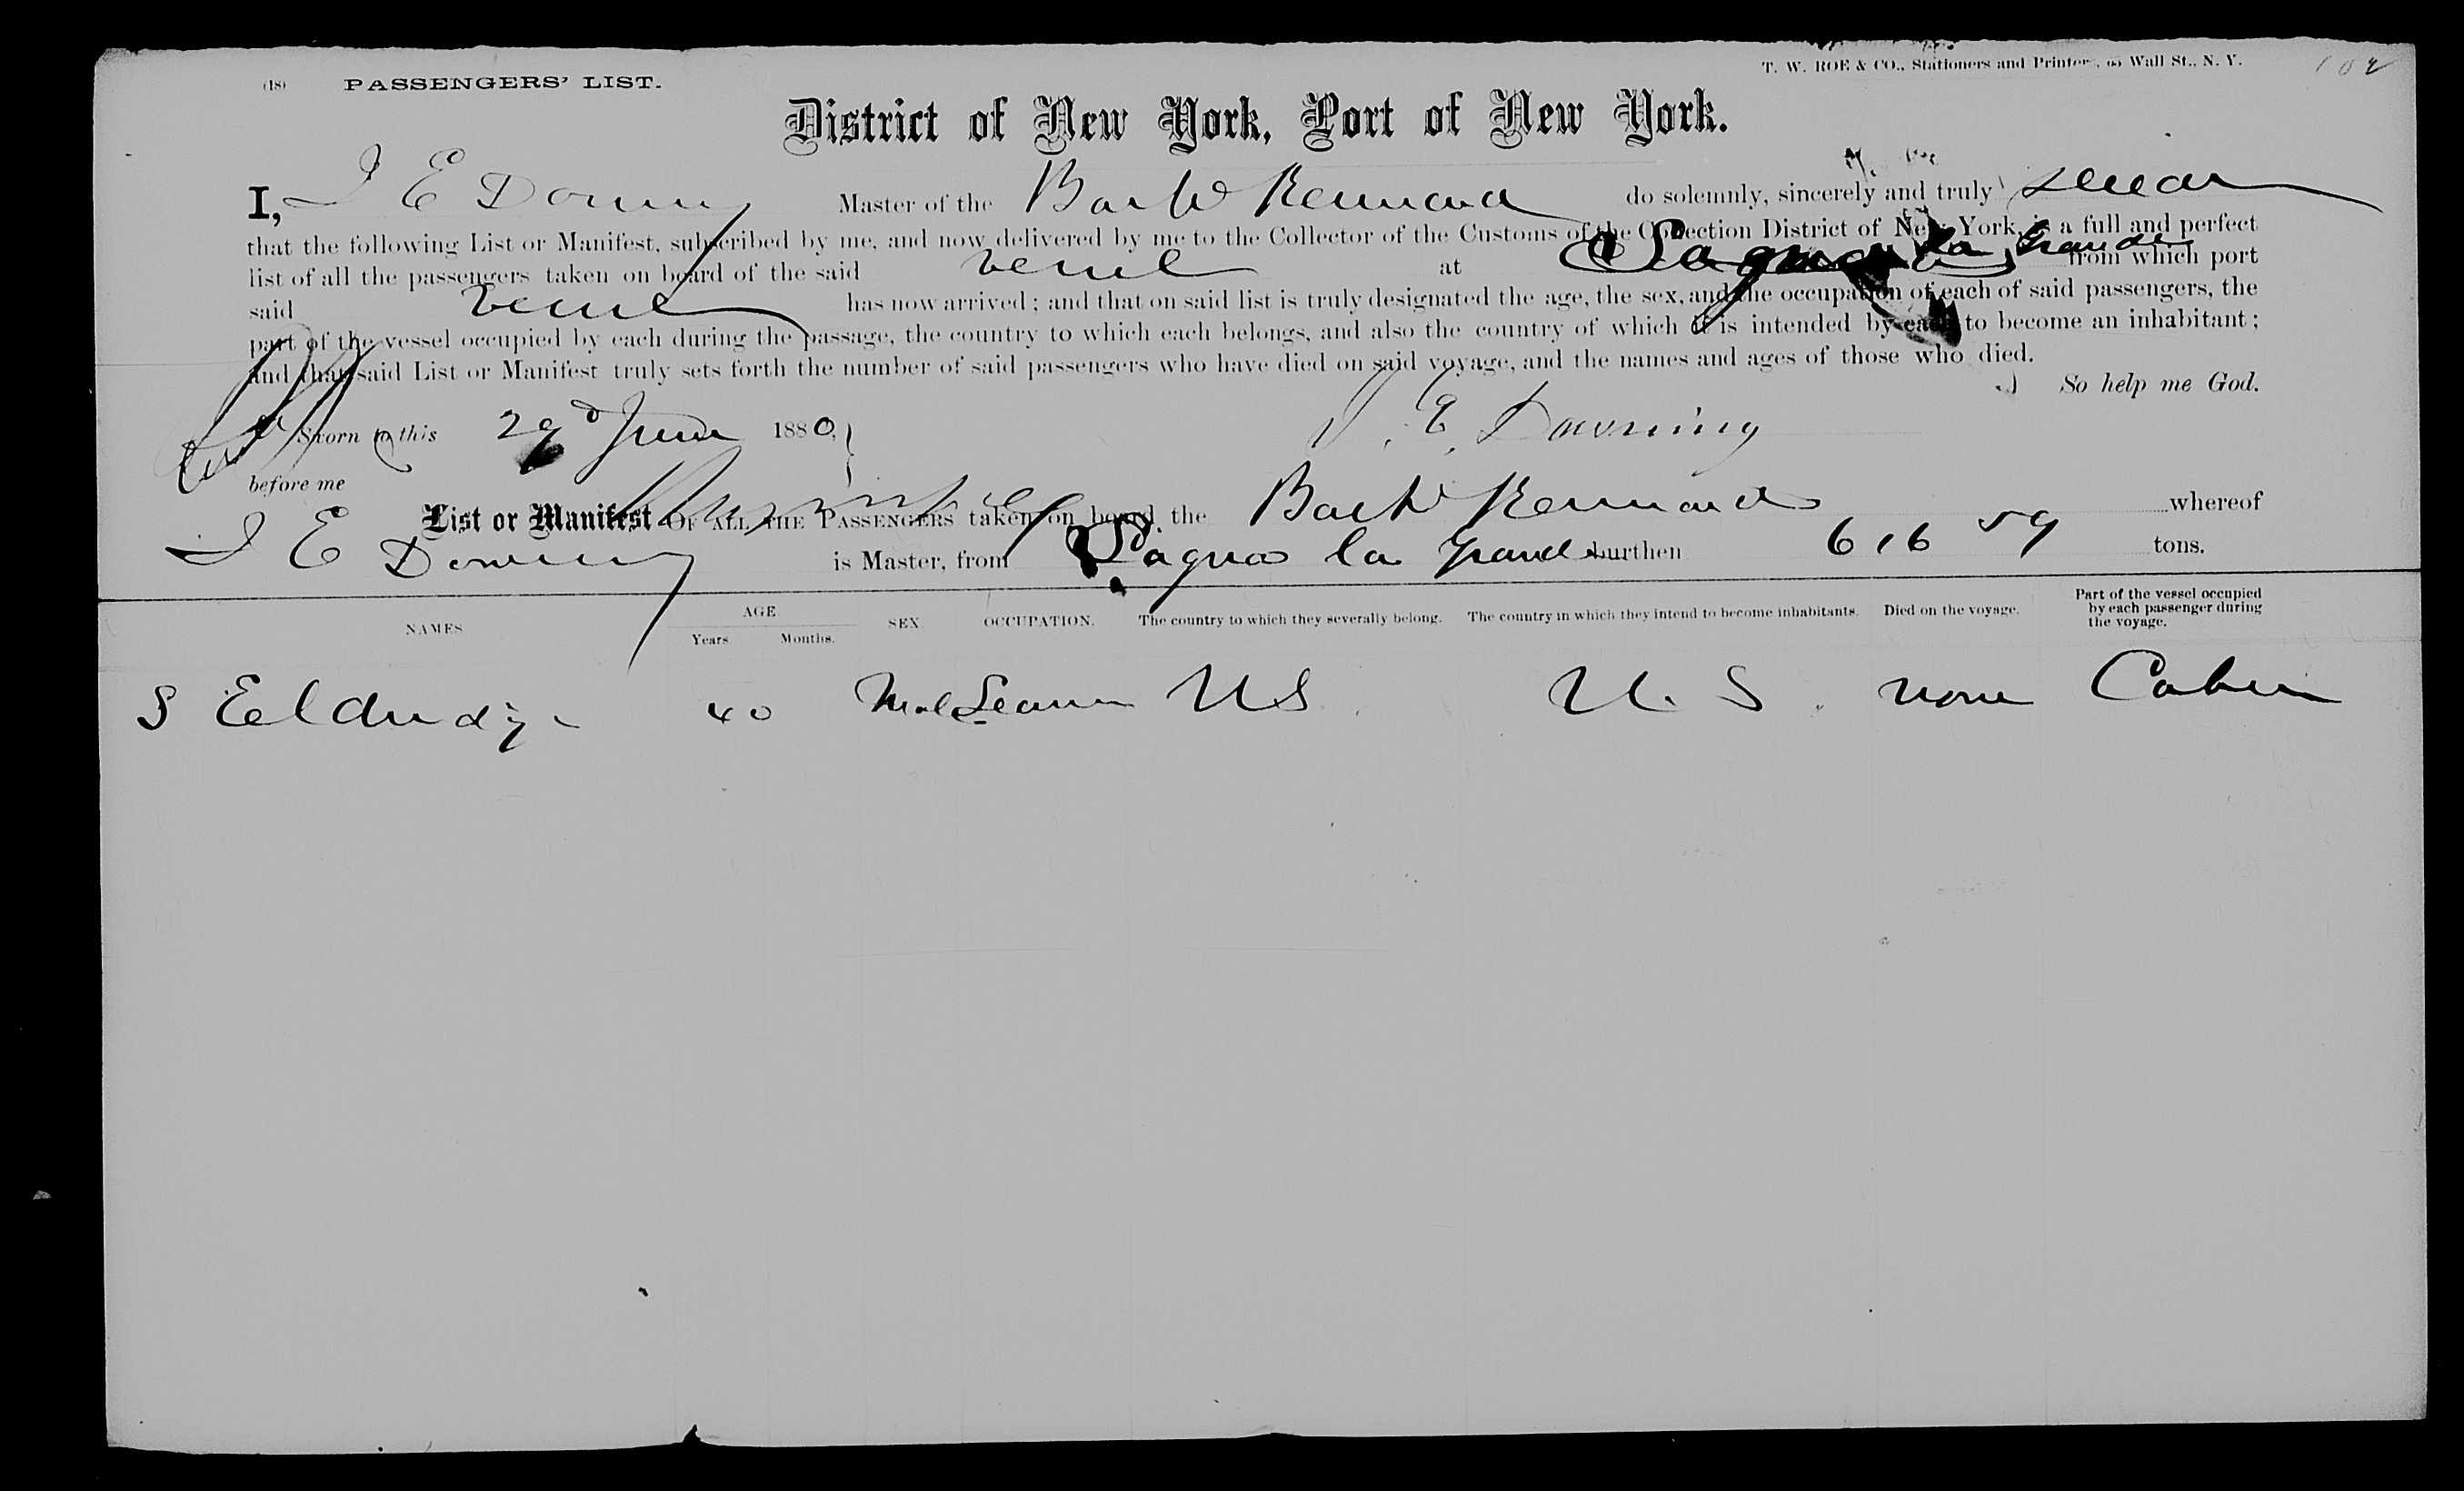 (18) PASSENGERS' LIST.
T. W. ROE & CO., Stationers and Printers, 65 Wall St., N. Y.
102
District of New York, Port of New York.
I, J E Downing Master of the Bark Kennard do solemnly, sincerely and truly swear
that the following List or Manifest, subscribed by me, and now delivered by me to the Collector of the Customs of the Collection District of New York, is a full and perfect
list of all the passengers taken on board of the said vessel at Sagua la Grande from which port
said vessel has now arrived; and that on said list is truly designated the age, the sex, and the occupation of each of said passengers, the
part of the vessel occupied by each during the passage, the country to which each belongs, and also the country of which it is intended by each to become an inhabitant;
and that said List or Manifest truly sets forth the number of said passengers who have died on said voyage, and the names and ages of those who died.
So help me God.
Sworn to this 29d June 1880,
J. E. Downing
before me
List or Manifest OF ALL THE PASSENGERS taken on board the Bark Kennard whereof
J E Downing is Master, from Sagua la Grande burthen 616 59 tons.
NAMES AGE Years Months. SEX. OCCUPATION. The country to which they severally belong. The country in which they intend to become inhabitants. Died on the voyage. Part of the vessel occupied by each passenger during the voyage.
S Eldridge 40 Mal Seaman US U. S. none Cabin